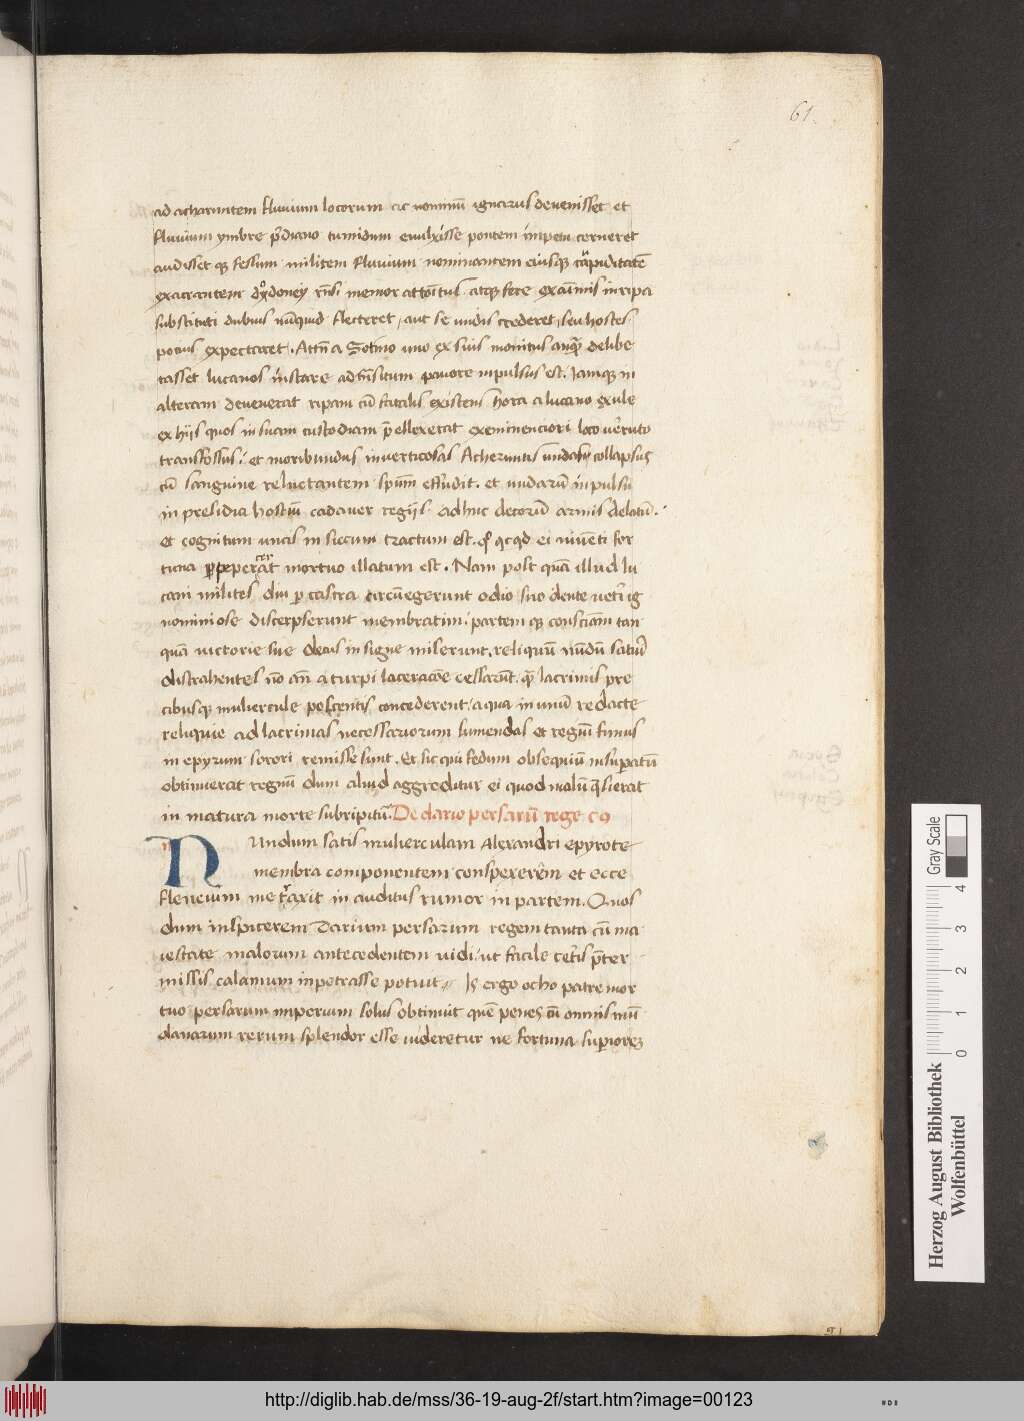 61.
ad acharuntem fluvium locorum ac nominũ ignarus devenisset et
fluvium ymbre p̃diano tumidum evulxisse pontem impetu cerneret
audisset q̧ fessum militem fluvium nominantem eiusq̧ rapiditatẽ
exacrantem memor attoĩtus atq̧ fere exaĩmis in ripa
substituti dubius nũquid flecteret, aut se undis crederet, seu hostes
potius expectaret. Attñ a Sotimo uno ex suis monitus an delibe
tasset lucanos instare ad trñsitum pavore inpulsus est. Iamq̧ in
alteram devenerat ripam cũ fatalis existens hora a lucano exule
ex hijs quos in suam custodiam p̃ellexerat exeminenciori loco veruto
transfossus: et moribundus in verticosas Acheruntis undas collapsus
cũ sanguine reluctantem spũm effudit. et undarũ inpulsu
in presidia hostiũ cadaver regijs adhuc decorũ armis delatũ.
et cognitum uncis in siccum tractum est. ei viventi for
tuna pepercerat mortuo illatum est. Nam post quã illud lu
cani milites diu p castra circũegerunt odio suo dente ig
nominiose discerpserunt membratim: partem q̧ consciam tan
quã victorie sue decus insigne miserunt, reliquũ nũdũ
distrahentes nõ añ a turpi laceracõe cessarũt, lacrimis pre
cibusq̧ muliercule poscentis concederent, a qua in unũ redacte
reliquie ad lacrimas necessariorum sumendas et regiũ funus
in epyrum sorori remisse sunt. Et sic qui fedum obsequiũ insuperatũ
obtinuerat regnũ dum aliud aggreditur ei quod malũ q̃sierat
in matura morte subripitũ. De dario persarũ rege c9
N Undum satis mulierculam Alexandri epyrote
membra componentem conspexerẽm et ecce
flencium me traxit in auditus rumor in partem. Quos
dum inspicerem Darium persarum regem tanta cũ ma
iestate malorum antecedentem vidi: ut facile cet̃is p̃ter
missis calamum inpetrasse potuit Is ergo ocho patre mor
tuo persarum imperium solus obtinuit quẽ penes cũ omnis mũ
danarum rerum splendor esse videretur ne fortuna superiorez
Gray Scale
0 1 2 3 4
Herzog August Bibliothek
Wolfenbüttel
http://diglib.hab.de/mss/36-19-aug-2f/start.htm?image=00123